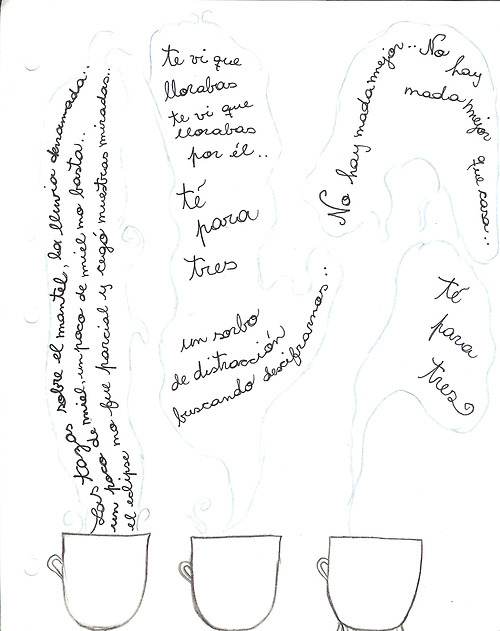 Las tazas sobre el mantel, la lluvia derramada..
un poco de miel, un poco de miel no basta..
el eclipse no fue parcial y cegó nuestras miradas..
te vi que
llorabas
te vi que
llorabas
por él..
té
para
tres
un sorbo
de distracción
buscando descifrarnos..
No hay nada mejor.. No
hay
nada mejor
que casa..
té
para
tres